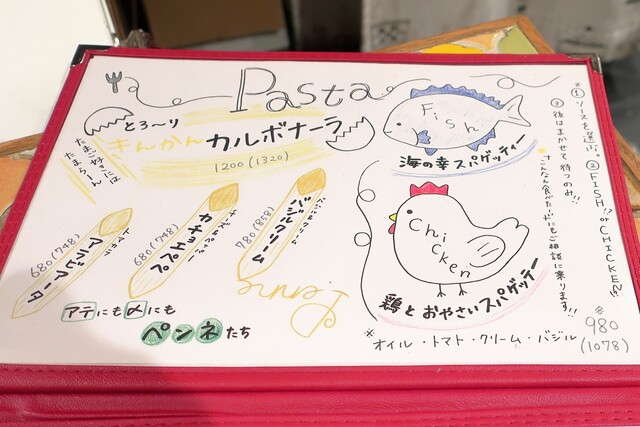 Pasta
とろ〜り
きんかん カルボナーラ
1200(1320)
たまご好きには
たまら〜ん
トマト
アラビアータ
680(748)
カチョエペペ
680(748)
バジルクリーム
780(858)
Penne
アテにも〆にも
ペンネたち
Fish
海の幸スパゲッティー
Chicken
鶏とおやさいスパゲッティー
※オイル・トマト・クリーム・バジル
※①ソースを選ぶ。②FISH!? or CHICKEN?
③後はまかせて待つのみ!!
こんなん食べたい…にもご相談に乗ります!!
各
980
(1078)